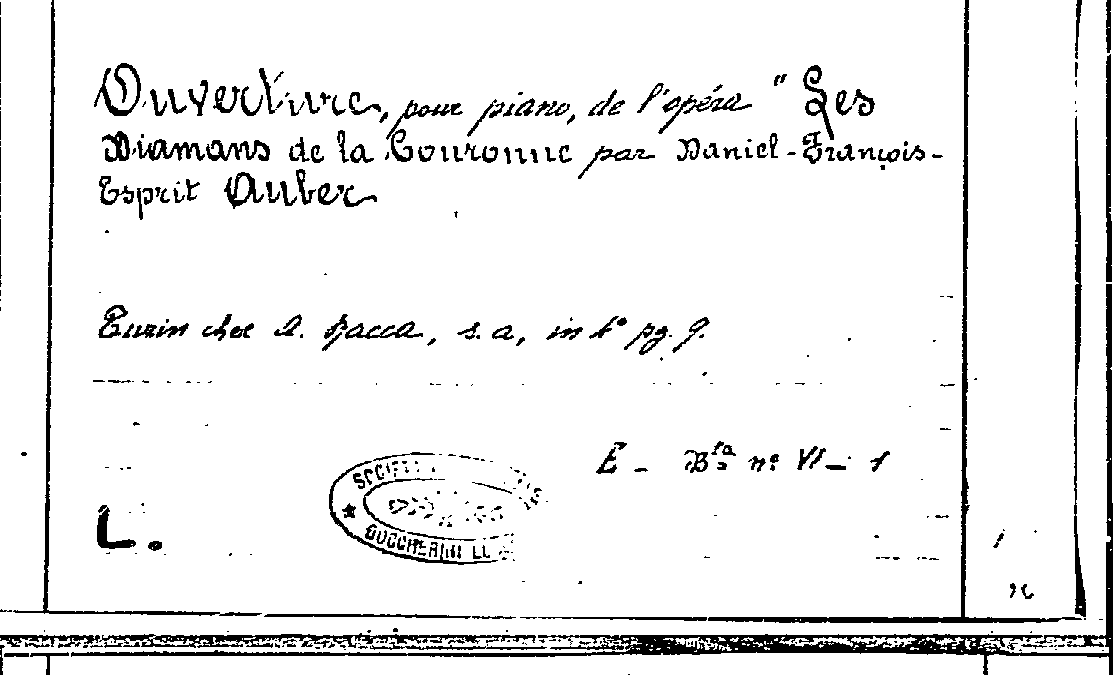 Ouverture, pour piano, de l'opéra " Les
Diamans de la Couronne par Daniel-François-
Esprit Auber
Turin chez A. Racca, s. a, in 4° pg. 9.
E - Bta n° VI - 1
L.
BOCCHERINI